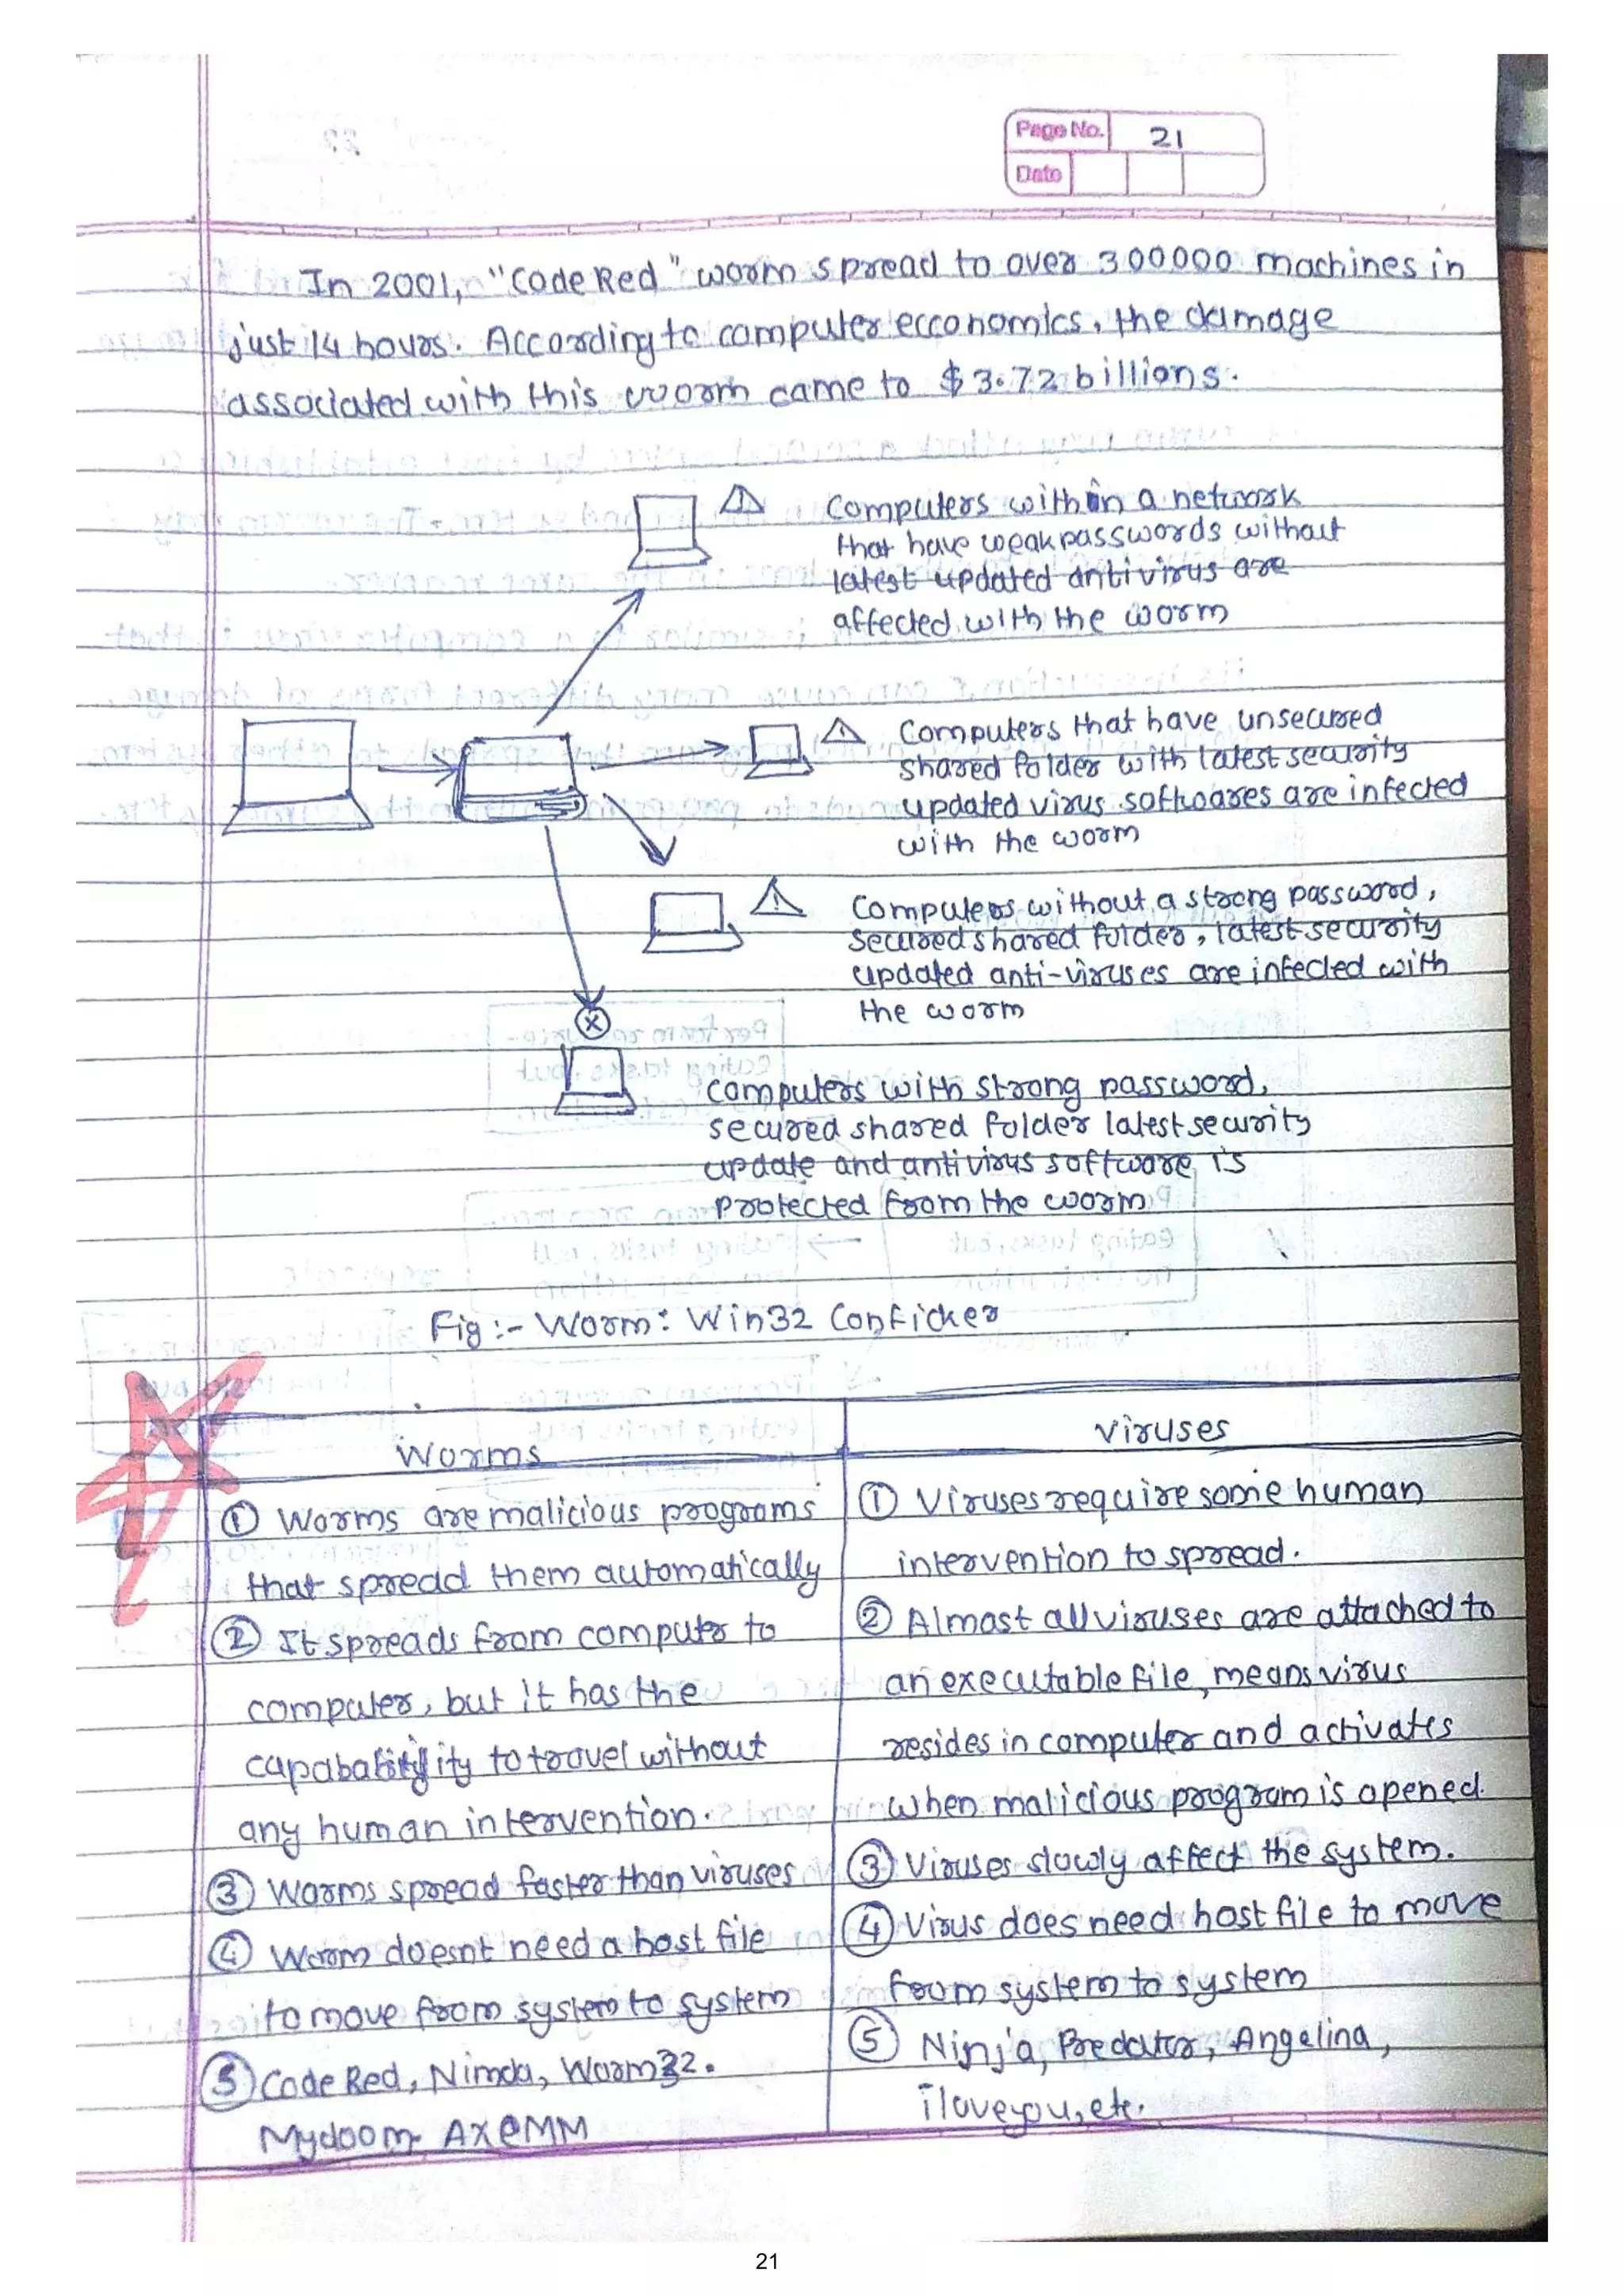 Page No. 21
Date
In 2001, "Code Red" worm spread to over 300000 machines in
just 14 hours. According to computer ecconomics, the damage
associated with this worm came to $3.72 billions.
Computers within a network
that have weak passwords without
latest updated antivirus are
affected with the worm
Computers that have unsecured
shared folder with latest security
updated virus softwares are infected
with the worm
Computers without a strong password,
secured shared folder, latest security
updated anti-viruses are infected with
the worm
computers with strong password,
secured shared folder latest security
update and antivirus software is
protected from the worm
Fig :- Worm: Win32 Conficker
Worms
Viruses
① Worms are malicious programs
that spread them automatically
② It spreads from computer to
computer, but it has the
ity to travel without
any human intervention.
③ Worms spread faster than viruses
④ Worm doesnt need a host file
to move from system to system
⑤ Code Red, Nimda, Worm32.
Mydoom AX@MM
① Viruses require some human
intervention to spread.
② Almost all viruses are attached to
an executable file, means virus
resides in computer and activates
when malicious program is opened.
③ Viruses slowly affect the system.
④ Virus does need host file to move
from system to system
⑤ Ninja, Predator, Angelina,
iloveyou, etc.
21